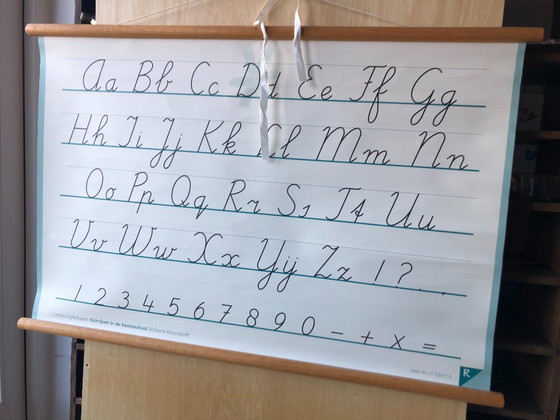 Aa Bb Cc Dd Ee Ff Gg
Hh Ii Jj Kk Ll Mm Nn
Oo Pp Qq Rr Ss Tt Uu
Vv Ww Xx Yij Zz ! ? . ,
1 2 3 4 5 6 7 8 9 0 - + x =
Schrijven in de basisschool
R